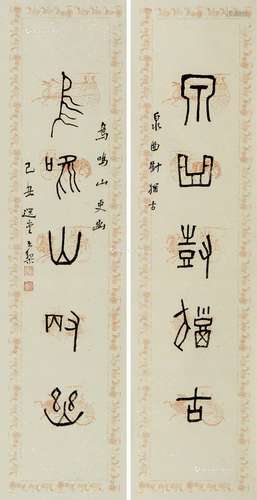 泉曲尌猶古
泉曲尌猶古
鳥鳴山更幽
鳥鳴山更幽
己丑選堂